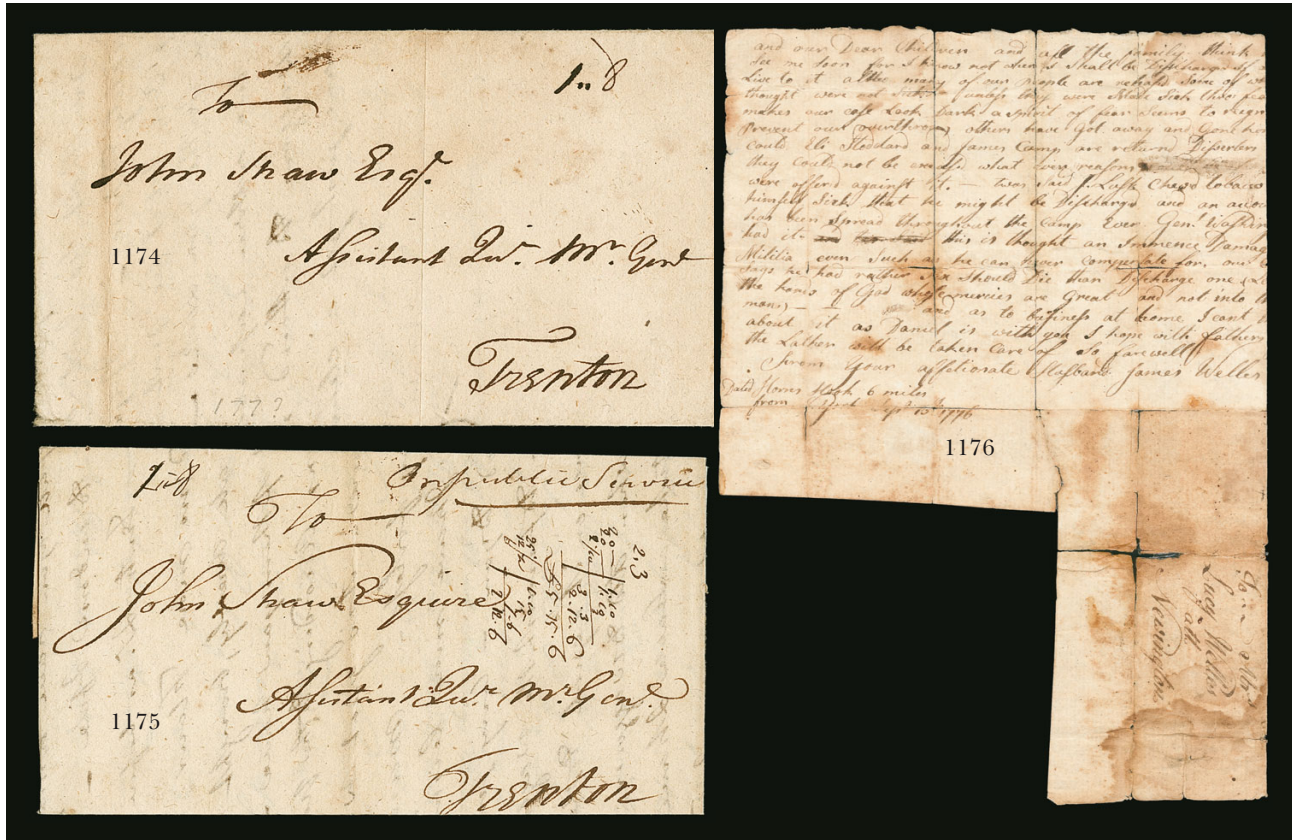 1..8
To
John Shaw Esqr.
1174
Assistant Qur. Mr. Genl
Trenton
1777
1..8
On public Service
To
John Shaw Esquire
Assistant Qur. Mr. Genl.
1175
Trenton
2.3
and our Dear Children and all the family think
See me Soon for I know not when I Shall be Discharge if
Live to it altho many of our people are
thought were not Sick unless they were
makes our case Look Dark a Spirit of fear Seems to reign
Prevent our overthrow others have Got away and Gone
could Eli Stoddard and James Camp are returned Disserters
they could not be what ever reasons
were offerd against it. — was Said J. Lusk Chewd tobacco
himself Sick that he might be Discharge and an accou
has been Spread throughout the Camp Ever Genl. Washin
had it this is thought an Immence Damag
Militia even Such as he can never Compensate for our
Says he had rather Six Should Die than Discharge one
the hands of God whose mercies are Great and not into th
mans — and as to business at home I cant
about it as Daniel is with you I hope with fathers
the Lather will be taken Care of So farewell
from Your affetionate Husband James Welles
Dated Horns Hook 6 miles
from York Sept 13th 1776
1176
Lucy Welles
att
Newington